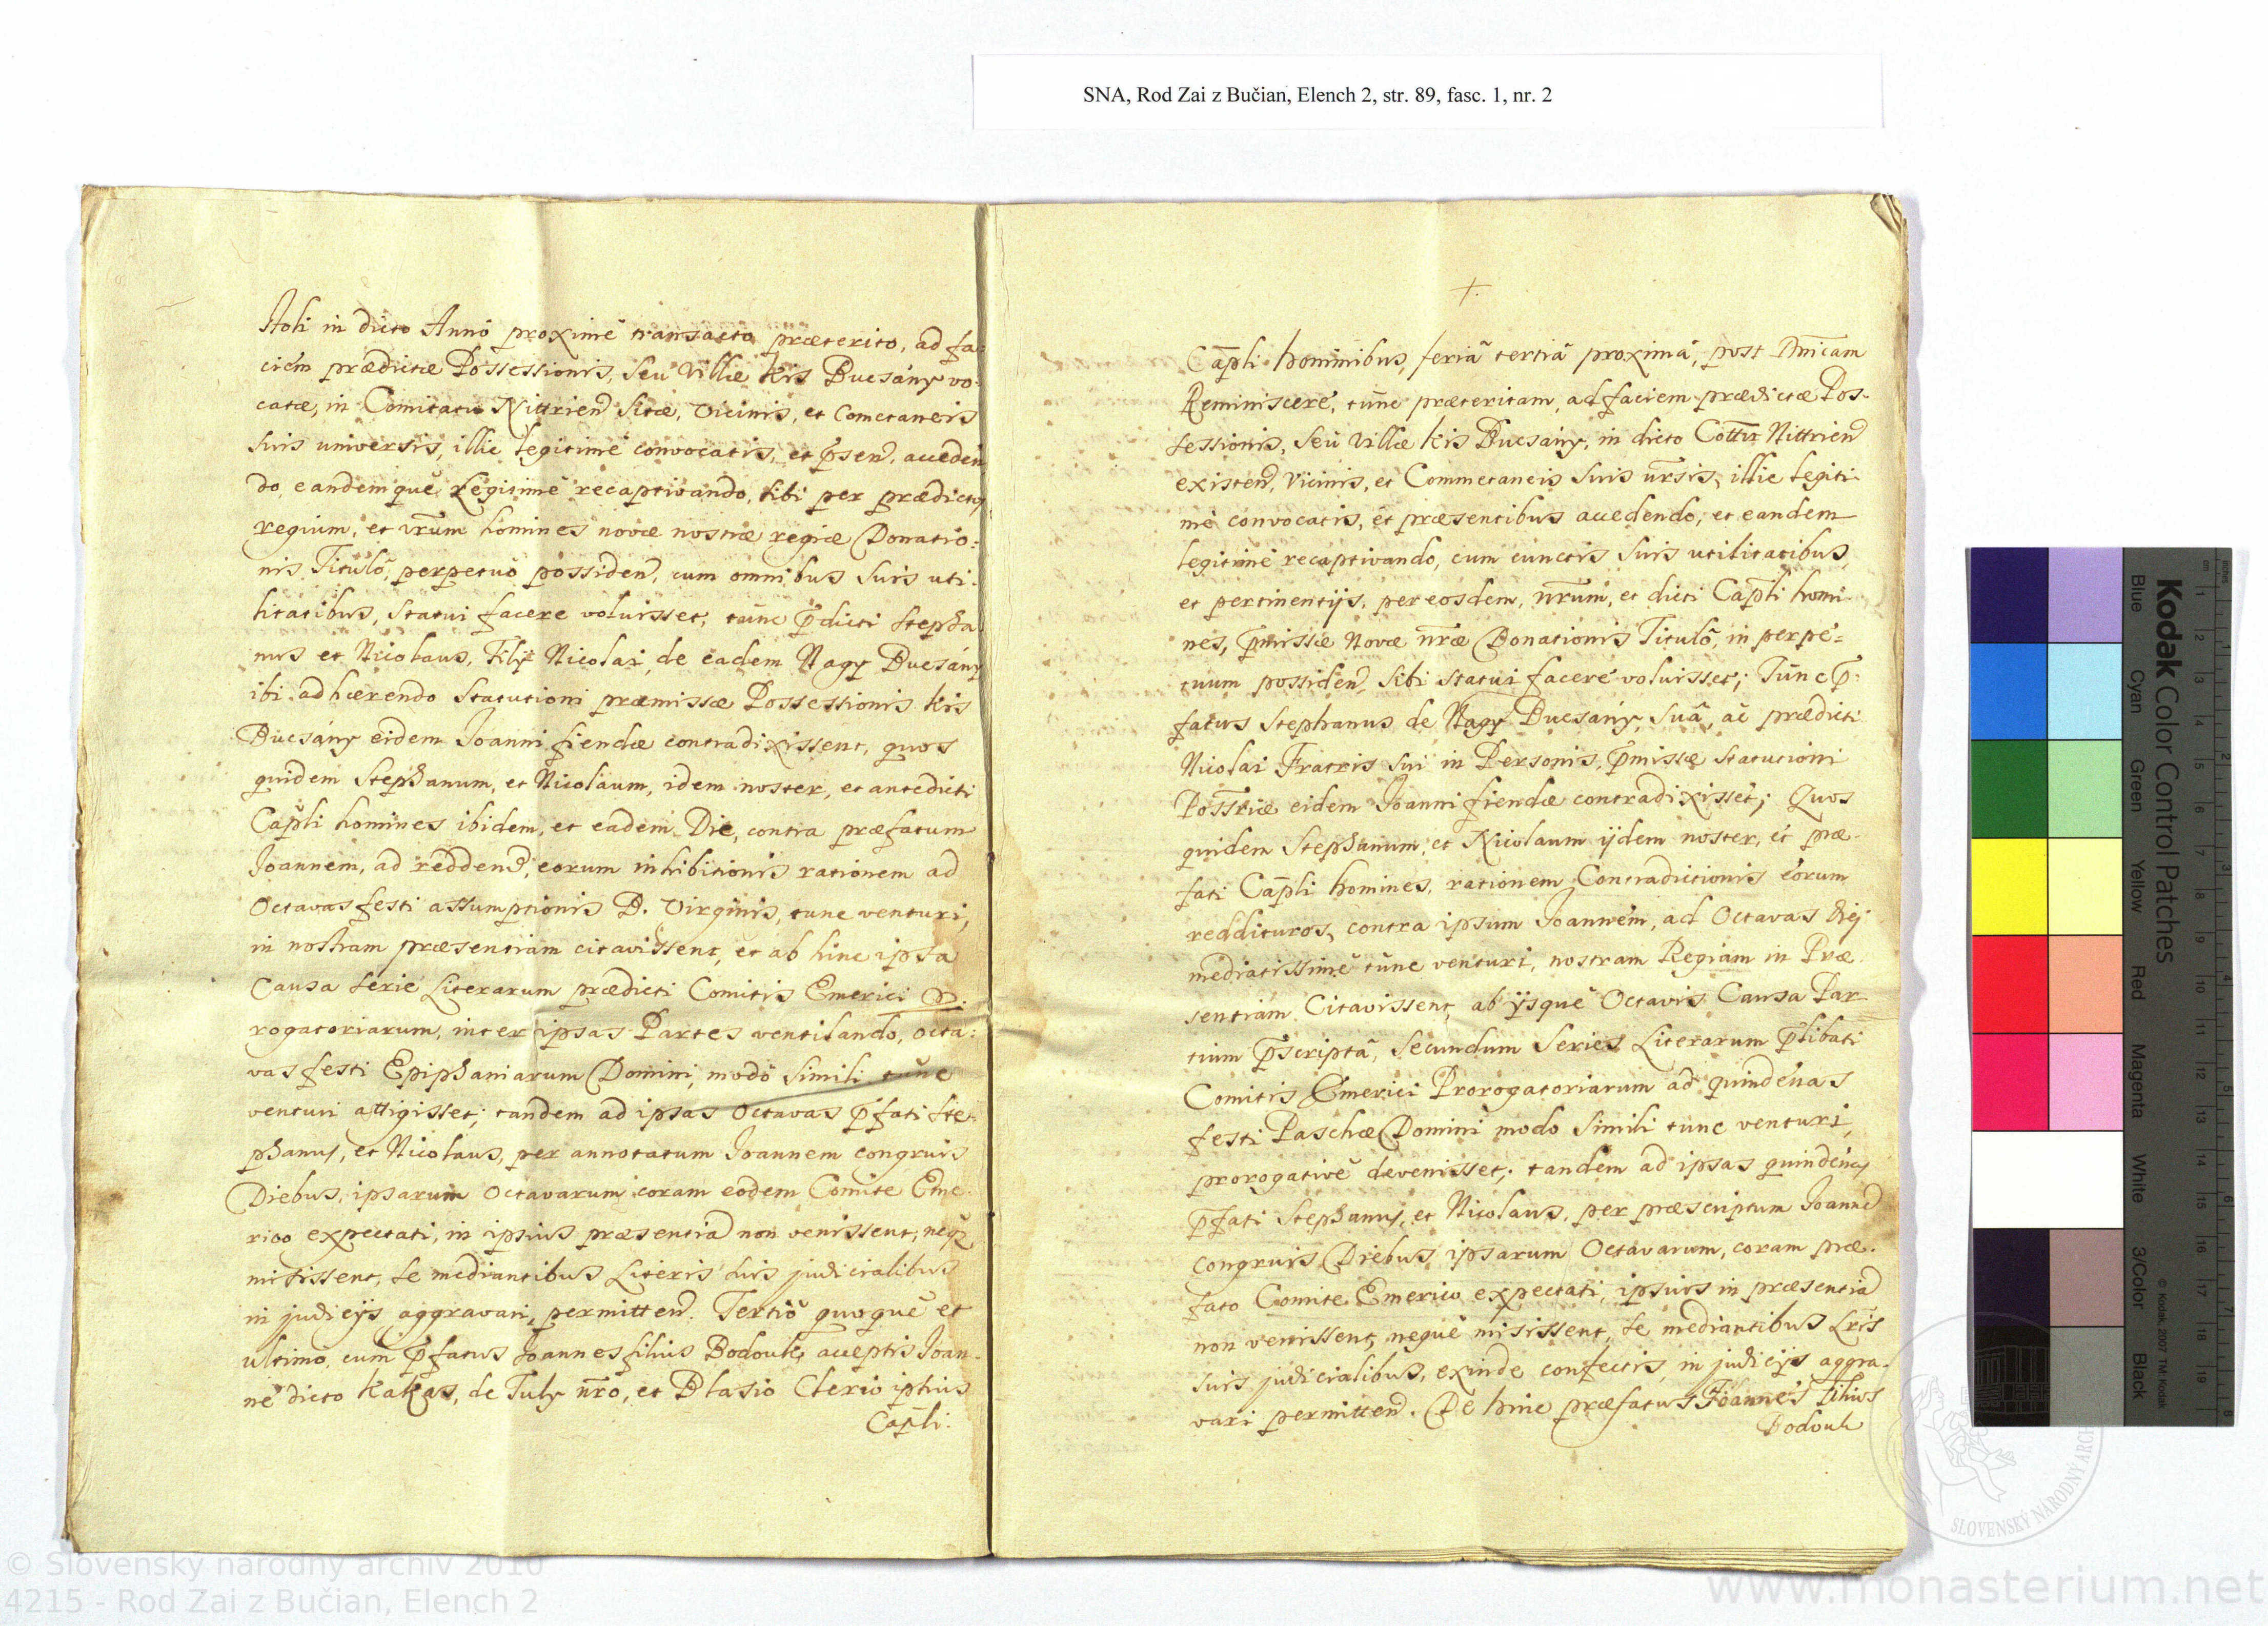 SNA, Rod Zai z Bučian, Elench 2, str. 89, fasc. 1, nr. 2
stoli in dicto Annō proximē transacto præterito, ad fa=
ciem prædictæ Possessionis, seu Villæ Kis Bucsány vo=
catæ, in Comitatu Nittriend sitæ, Vicinis, et Cometaneis
suis universis, illic legitimē convocatis, et p̄send, acceden
do, eandemquē legitimē recaptivando, sibi per prædictos
regium, et vr̄um homines novæ nostræ regiæ Donatio=
nis Titulō, perpetuō possidend, cum omnibus suis uti=
litatibus, statui facere voluisset, tunc p̄dicti Stepha
nus et Nicolaus, Filij Nicolai de eadem Nagy Bucsány
ibi adhærendo statutioni præmissæ Possessionis Kis
Bucsány eidem Joanni fiendæ contradixissent, quos
quidem Stephanum, et Nicolaum, idem noster, et antedicti
Cap̄li homines ibidem, et eadem Die, contra præfatum
Joannem, ad reddend, eorum inhibitionis rationem ad
Octavas festi assumptionis B. Virginis, tunc venturi,
in nostram præsentiam citavissent, et ab hinc ipsa
Causa serie Literarum prædicti Comitis Emerici P.
rogatoriarum, inter ipsas Partes ventilando, octa=
vas festi Epiphaniarum Domini, modō simili tunc
venturi attigisset; tandem ad ipsas Octavas p̄fati Ste=
phanus, et Nicolaus, per annotatum Joannem congruis
Diebus, ipsarum Octavarum coram eodem Comite Eme=
rico expectati, in ipsius præsentiad non venissent, neq
misissent, se mediantibus Literis suis judicialibus
in judicijs aggravari, permittend. Tertiō quoquē et
ultimo, cum p̄fatus Joannes filius Bodouh, acceptis Joan=
nē dicto Kakas, de Tuly nr̄o, et Blasio Clerico ipsius
Cap̄li:
+.
Cap̄li hominibus, feriā tertiā proximā, post Dnīcam
Reminisceré, tūnc præteritam, ad faciem prædictæ Pos=
sessionis, seu Villæ Kis Bucsány, in dicto Cottū Nittriend
existend, Vicinis, et Commetaneis suis ur̄sis, illic legiti=
mē convocatis, et præsentibus accedendo, et eandem
legitimē recaptivando, cum cunctis suis utilitatibus,
et pertinentijs, per eosdem, nr̄um, et dicti Cap̄li homi=
nes, p̄missæ Novæ nr̄æ Donationis Titulō, in perpe=
tuum possidend, sibi statui facere voluisset; Tūnc p̄=
fatus Stephanus de Nagy Bucsány, suā, ac prædicti
Nicolai Fratris sui in Personis, p̄missæ statutioni
Poss̄riæ eidem Joanni fiendæ contradixisset; Quos
quidem Stephanum, et Nicolaum ijdem noster, et præ=
fati Cap̄li homines, rationem Contradictionis eorum
reddituros, contra ipsum Joannem, ad Octavas diej
mediatissimē tūnc venturi, nostram Regiam in Præ=
sentiam Citavissent, ab ijsquē Octavis Causa Par=
tium p̄scriptā, secundum Series Literarum p̄libati
Comitis Emerici Prorogatoriarum ad quindenas
festi Paschæ Domini modo simili tunc venturi,
prorogativē devenisset; tandem ad ipsas quindenas
p̄fati Stephanus, et Nicolaus, per præscriptum Joanned
congruis Diebus ipsarum Octavarum, coram præ=
fato Comite Emerico expectati, ipsius in præsentiad
non venissent, nequē misissent, se mediantibus Lr̄is
suis judicialibus, exinde confectis, in judicijs aggra=
vari permittend. De hinc præfatus Joannes filius
Bodouh
Kodak Color Control Patches
Blue Cyan Green Yellow Red Magenta White 3/Color Black
© Kodak, 2007 TM: Kodak
SLOVENSKÝ NÁRODNÝ ARCH
© Slovenský národný archív 2010
4215 - Rod Zai z Bučian, Elench 2
www.monasterium.net